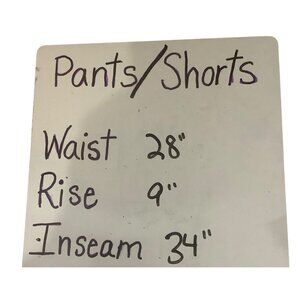 Pants/Shorts
Waist 28"
Rise 9"
Inseam 34"